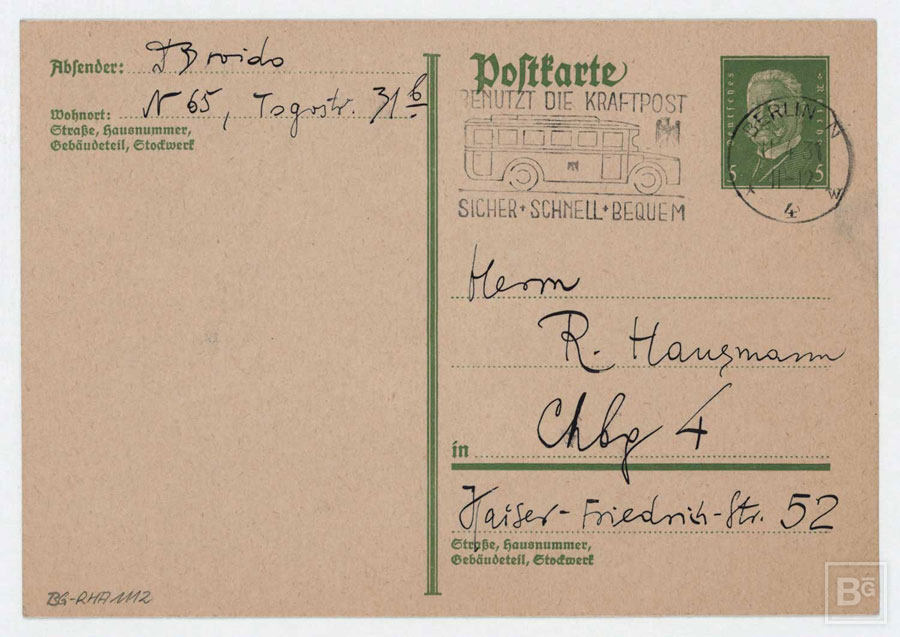 Absender: D Broido
Wohnort: N 65, Togostr. 31 b
Straße, Hausnummer,
Gebäudeteil, Stockwerk
Postkarte
BENUTZT DIE KRAFTPOST
SICHER + SCHNELL + BEQUEM
Deutsches
5 5
BERLIN N
31
11-12
* W
4
Herrn
R. Hausmann
in Chbg 4
Kaiser-Friedrich-Str. 52
Straße, Hausnummer,
Gebäudeteil, Stockwerk
BG-RHA 1112
BG